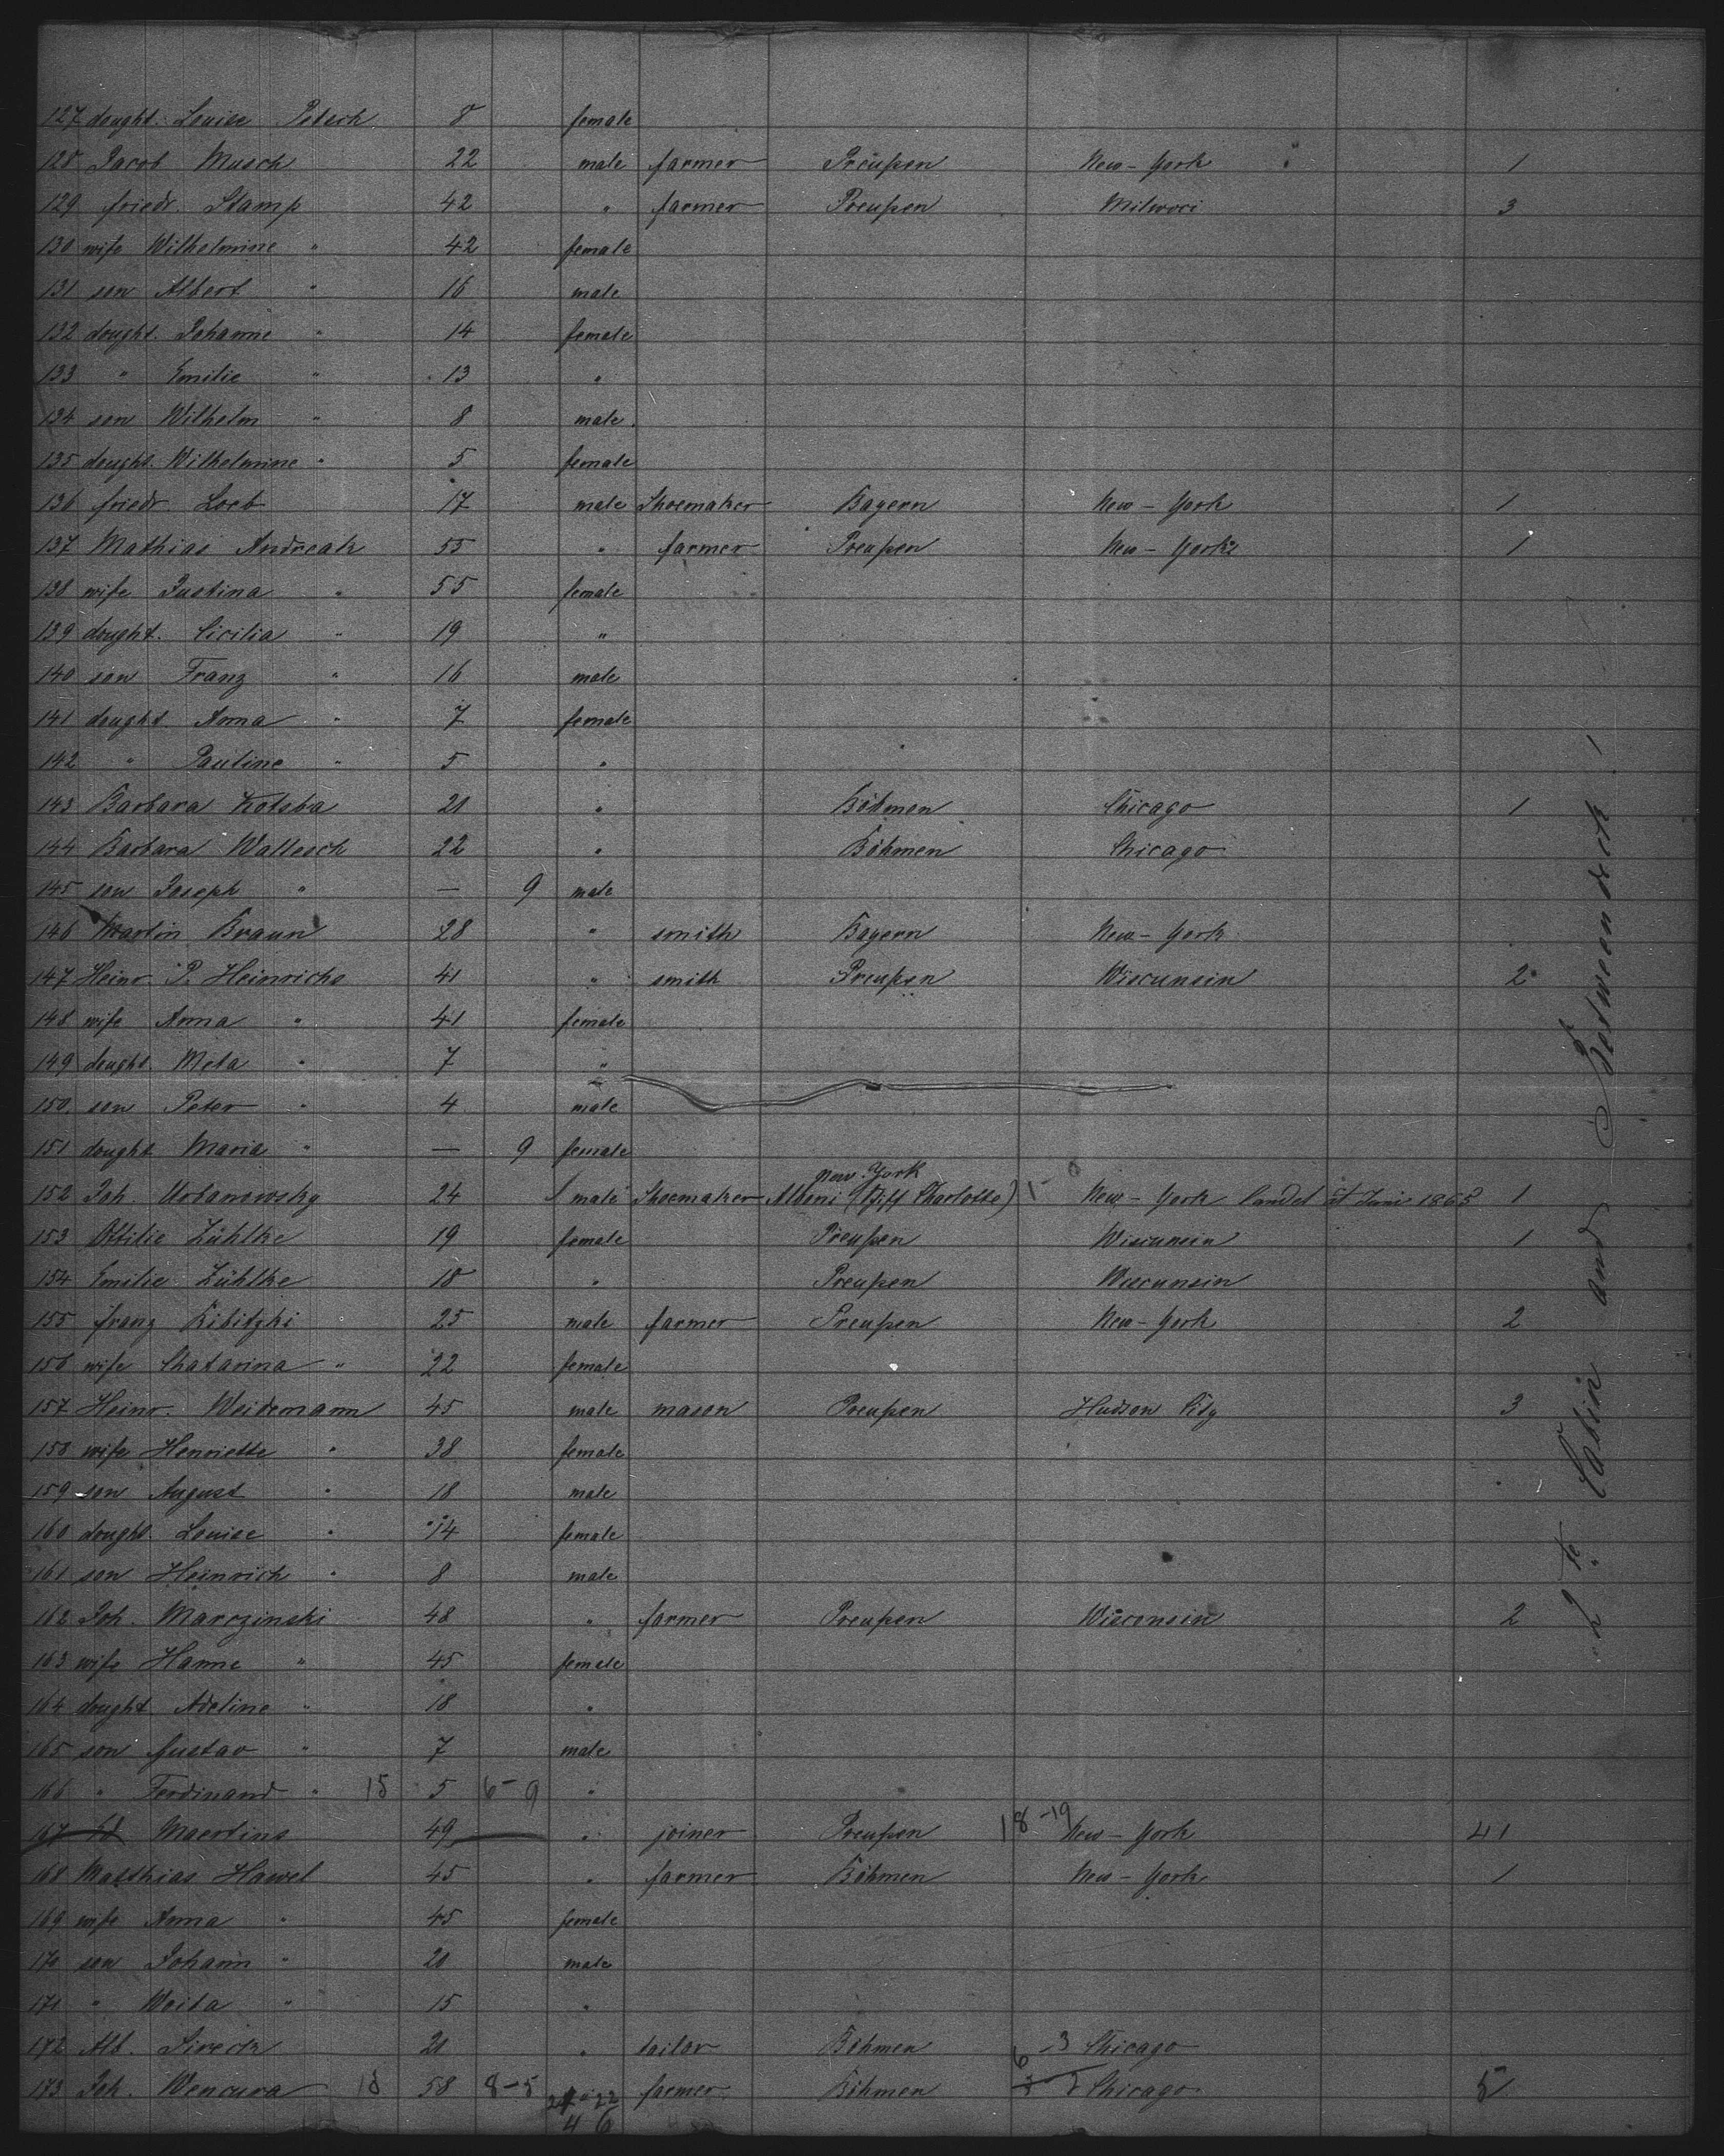 127 dought. Louise Petsch 8 female
128 Jacob Musch 22 male farmer Preußen New-York 1
129 friedr. Stamp 42 " farmer Preußen Milwoci 3
130 wife Wilhelmine " 42 female
131 son Albert " 16 male
132 dought. Johanne " 14 female
133 " Emilie " 13 "
134 son Wilhelm " 8 male
135 dought. Wilhelmine " 5 female
136 friedr. Loeb 17 male Shoemaker Bayern New-York 1
137 Mathias Andreak 55 " farmer Preußen New-York 1
138 wife Justina " 55 female
139 dought. Cicilia " 19 "
140 son Franz " 16 male
141 dought. Anna " 7 female
142 " Pauline " 5 "
143 Barbara Kotaba 20 " Böhmen Chicago 1
144 Barbara Wallesch 22 " Böhmen Chicago
145 son Joseph " — 9 male
146 Martin Braun 28 " smith Bayern New-York
147 Heinr. P. Heinrichs 41 " smith Preußen Wiscunsin 2
148 wife Anna " 41 female
149 dought. Meta " 7 "
150 son Peter " 4 male
151 dought Maria " — 9 female
New York
152 Joh. Urbanowsky 24 male Shoemaker (Biff Charlotte) New-York landet at Juni 1865 1
153 Ottilie Zühlke 19 female Preußen Wiscunsin 1
154 Emilie Zühlke 18 " Preußen Wiscunsin
155 franz Kibitzki 25 male farmer Preußen New-York 2
156 wife Chatarina " 22 female
157 Heinr. Weidemann 45 male mason Preußen Hudson City 3
158 wife Henriette " 38 female
159 son August " 18 male
160 dought. Louise " 14 female
161 son Heinrich " 8 male
162 Joh. Marczinski 48 " farmer Preußen Wisconsin 2
163 wife Hanne " 45 female
164 dought Adeline " 18 "
165 son Gustav " 7 male
166 " Ferdinand " 15 5 6-9 "
167 Maertins 49 " joiner Preußen 18-19 New-York 41
168 Matthias Hawel 45 " farmer Böhmen New-York 1
169 wife Anna " 45 female
170 son Johann " 20 male
171 " Woita " 15 "
172 Alb. Sireck 20 " tailor Böhmen 6-3 Chicago
173 Joh. Wencura 18 58 8-5 farmer Böhmen Chicago 5
24-22
46
2te Cabin and Betweendeck